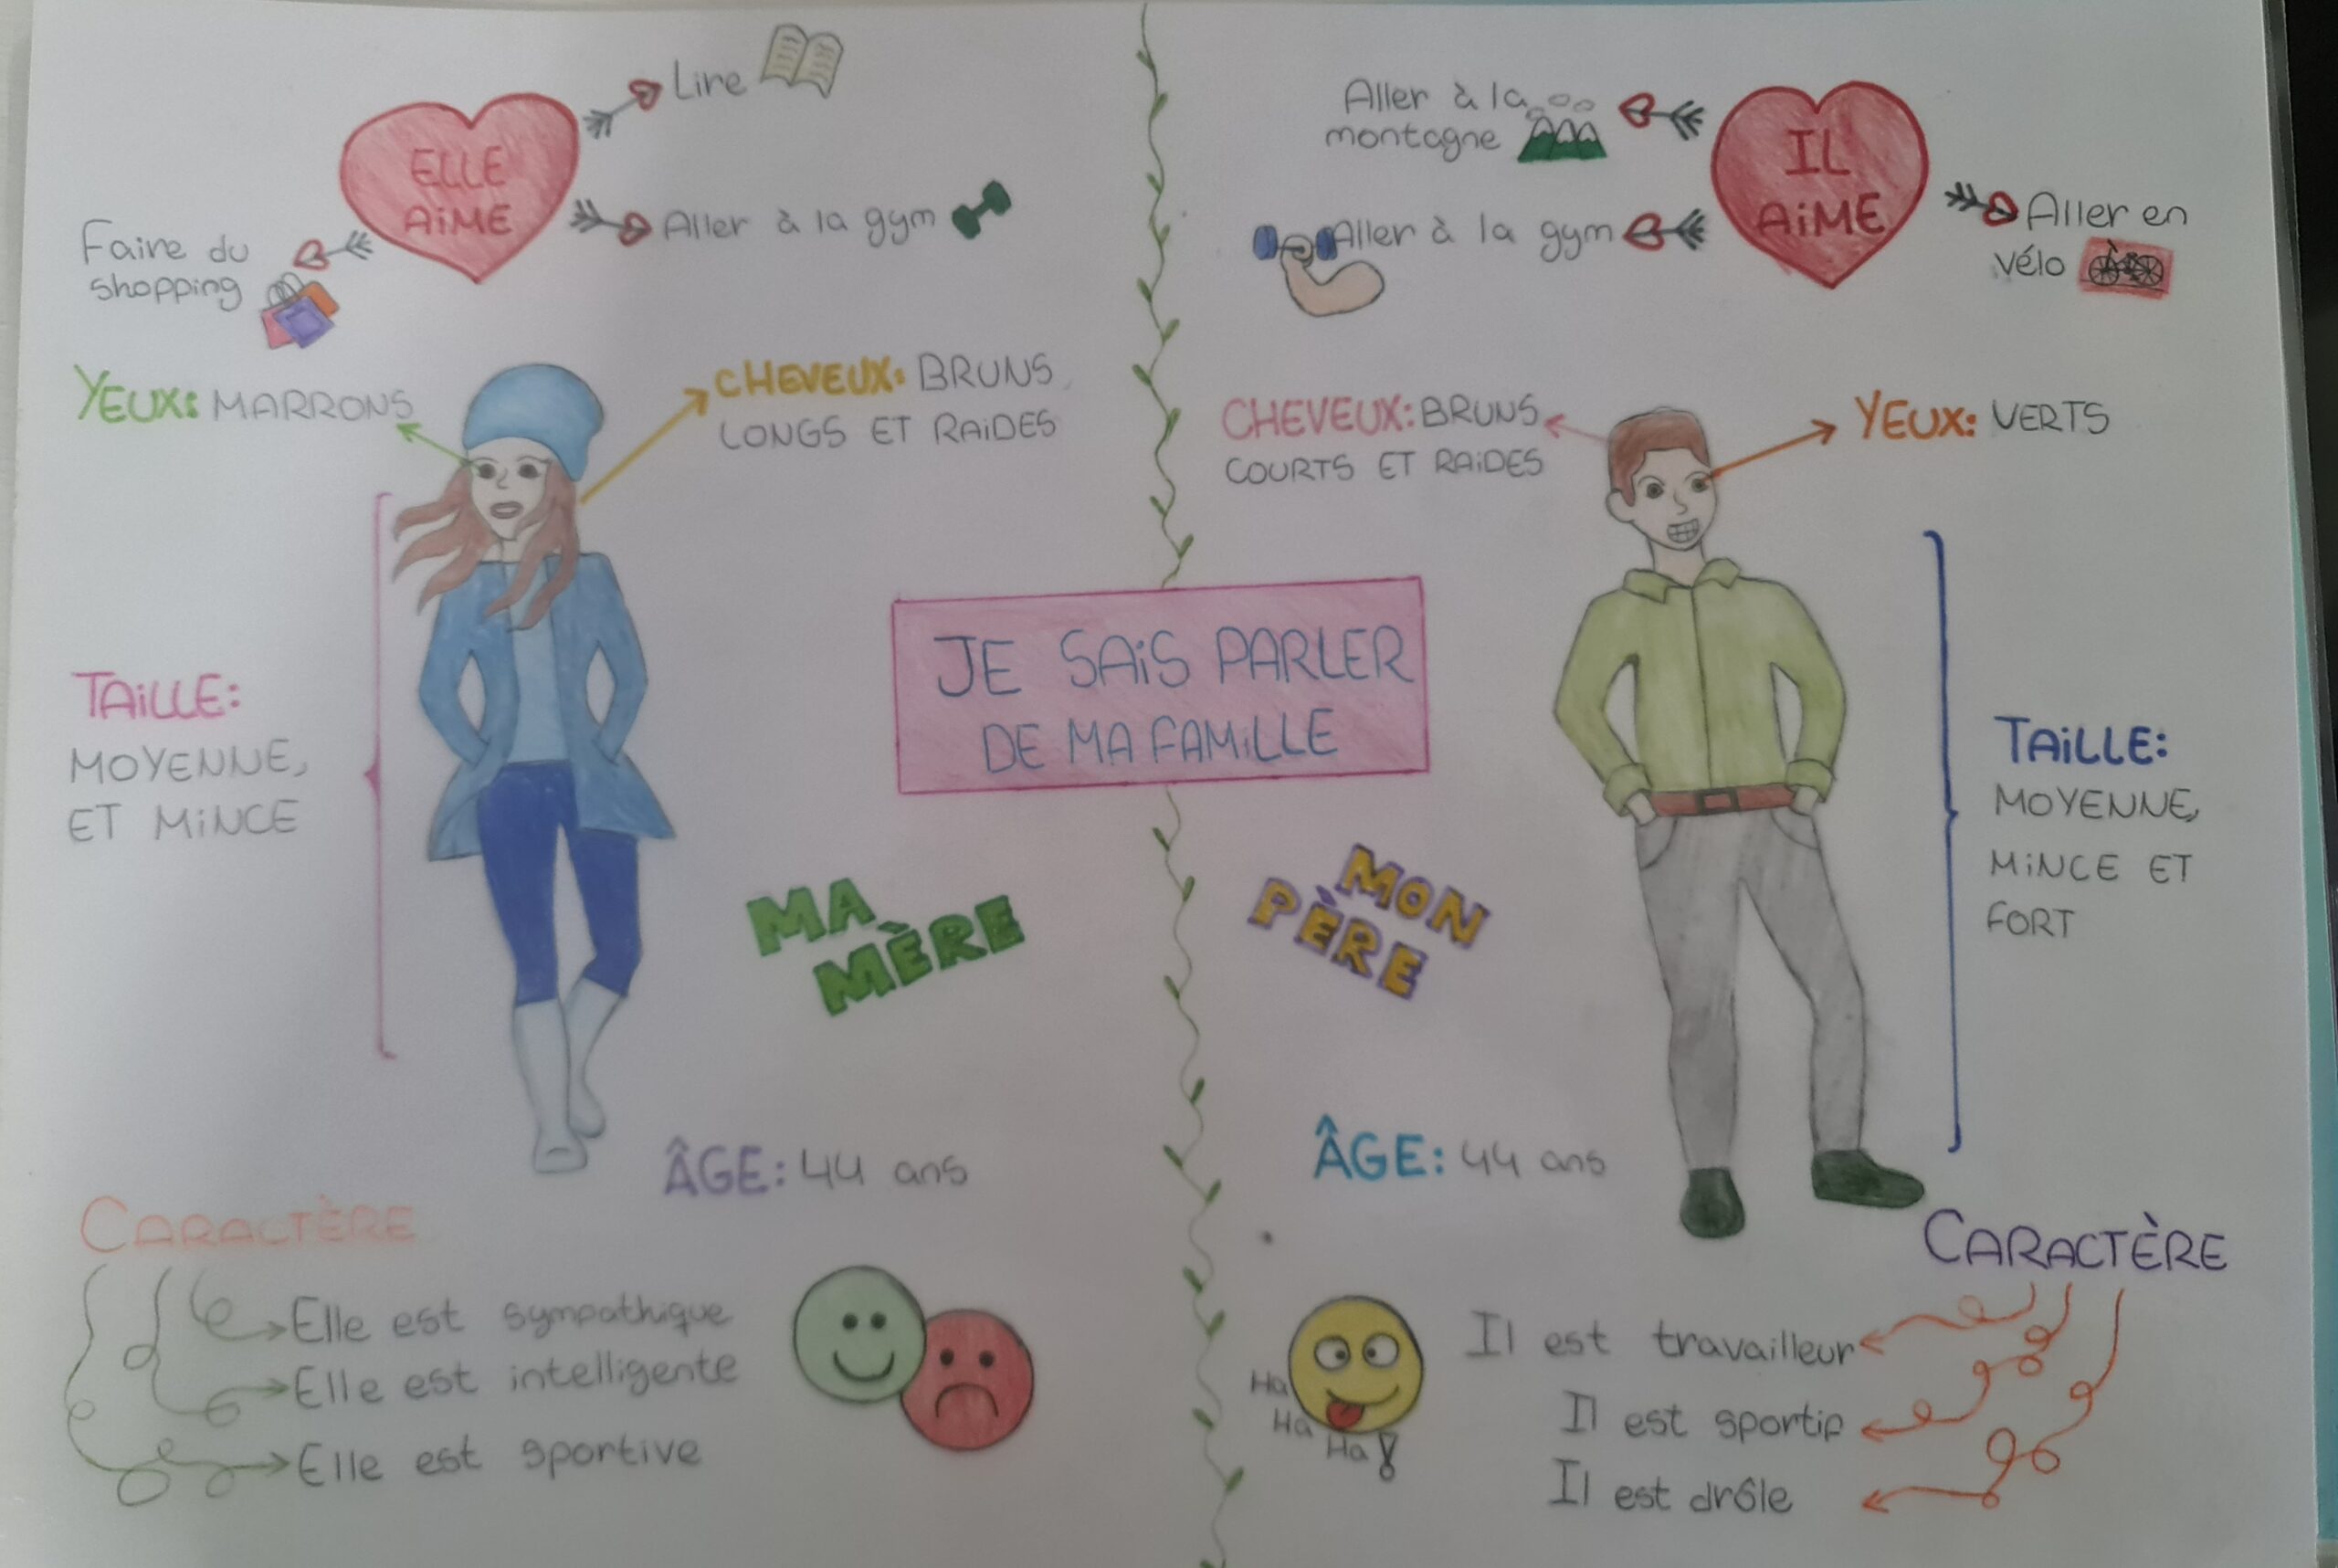 Lire
ELLE
AiME
Aller à la gym
Faire du
shopping
YEUX: MARRONS
CHEVEUX: BRUNS
LONGS ET RAiDES
TAiLLE:
MOYENNE,
ET MiNCE
MA
MÈRE
ÂGE: 44 ans
CARACTÈRE
Elle est sympathique
Elle est intelligente
Elle est sportive
JE SAiS PARLER
DE MA FAMiLLE
Aller à la
montagne
IL
AiME
Aller à la gym
Aller en
vélo
CHEVEUX: BRUNS
COURTS ET RAiDES
YEUX: VERTS
TAiLLE:
MOYENNE,
MiNCE ET
FORT
MON
PÈRE
ÂGE: 44 ans
CARACTÈRE
Il est travailleur
Il est sportif
Il est drôle
Ha
Ha
Ha!